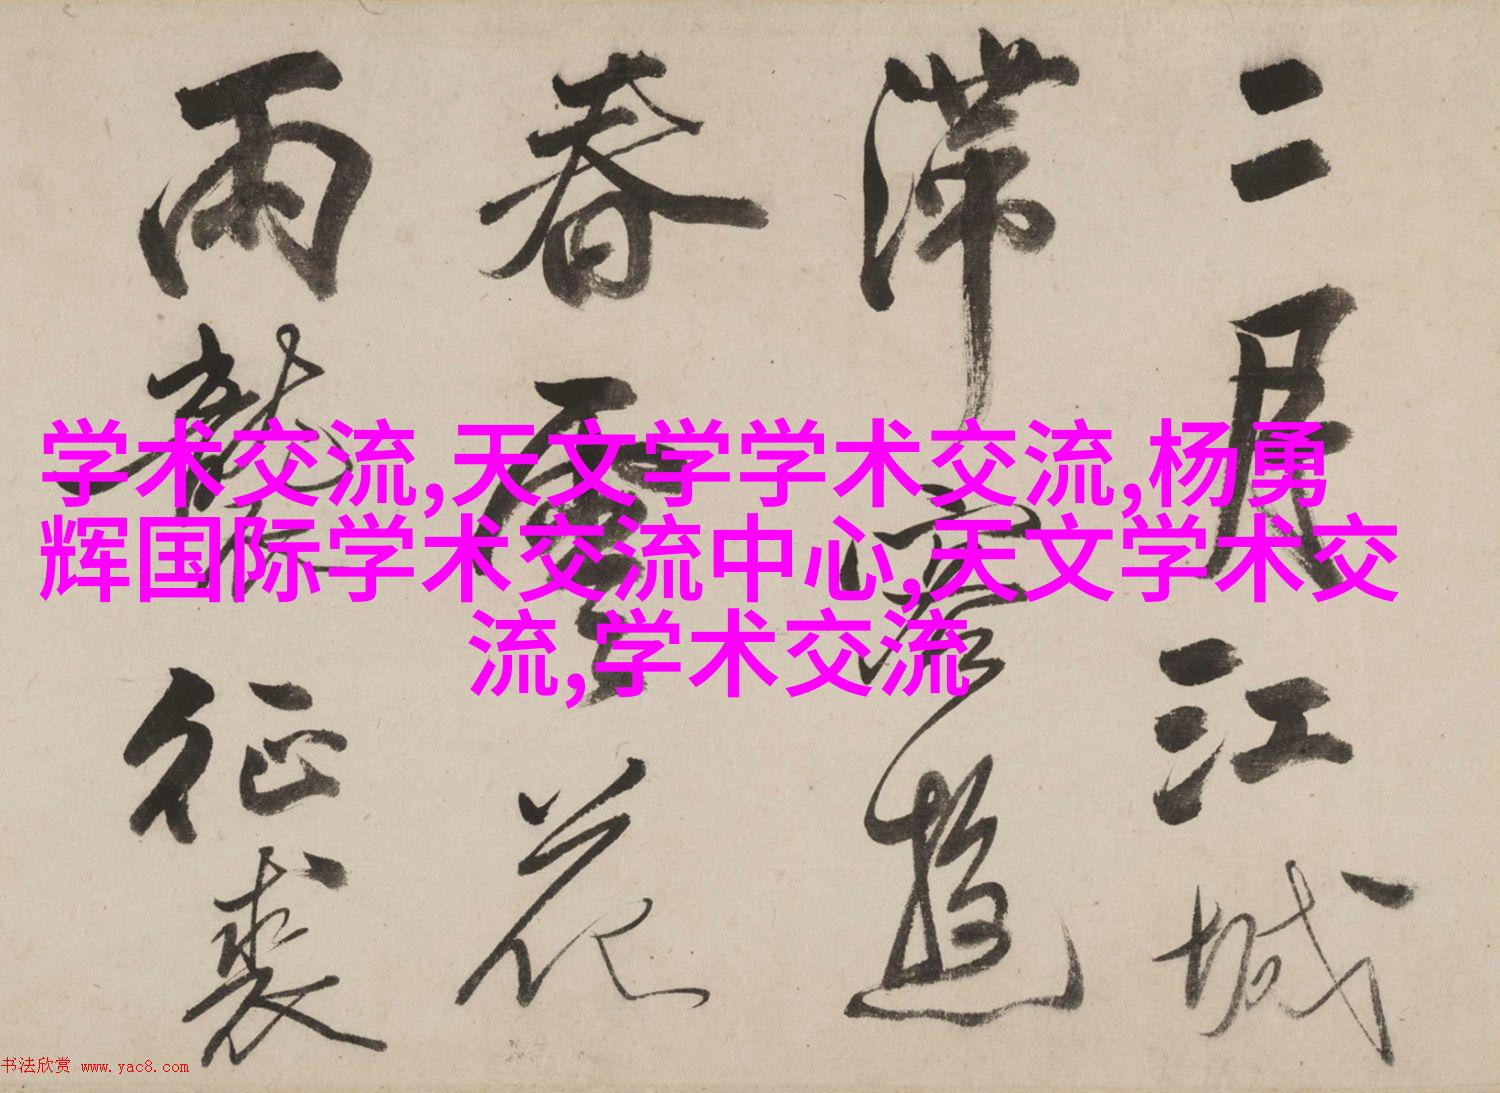 二月江城
滞客游
春雪花
雨龙征裘
学术交流,天文学学术交流,杨勇
辉国际学术交流中心,天文学术交
流,学术交流
书法欣赏 www.yac8.com